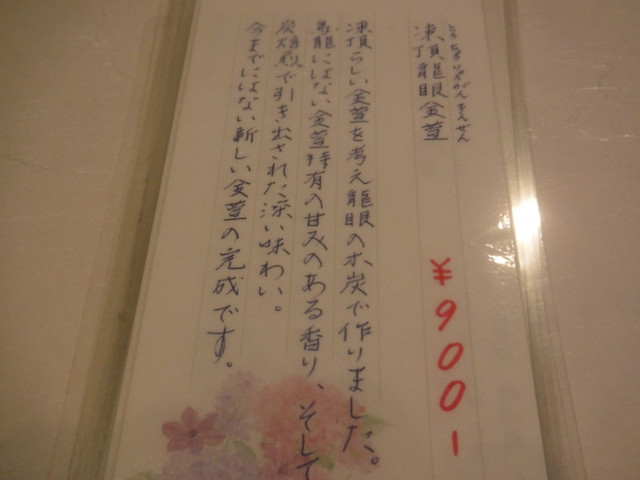 とうちょうりゅうがんきんせん
凍頂龍眼金萱
¥900-
凍頂らしい金萱を考え龍眼の木炭で作りました。
烏龍にはない金萱特有の甘みのある香り、そして
炭焙煎で引き出された深い味わい。
今までにはない新しい金萱の完成です。